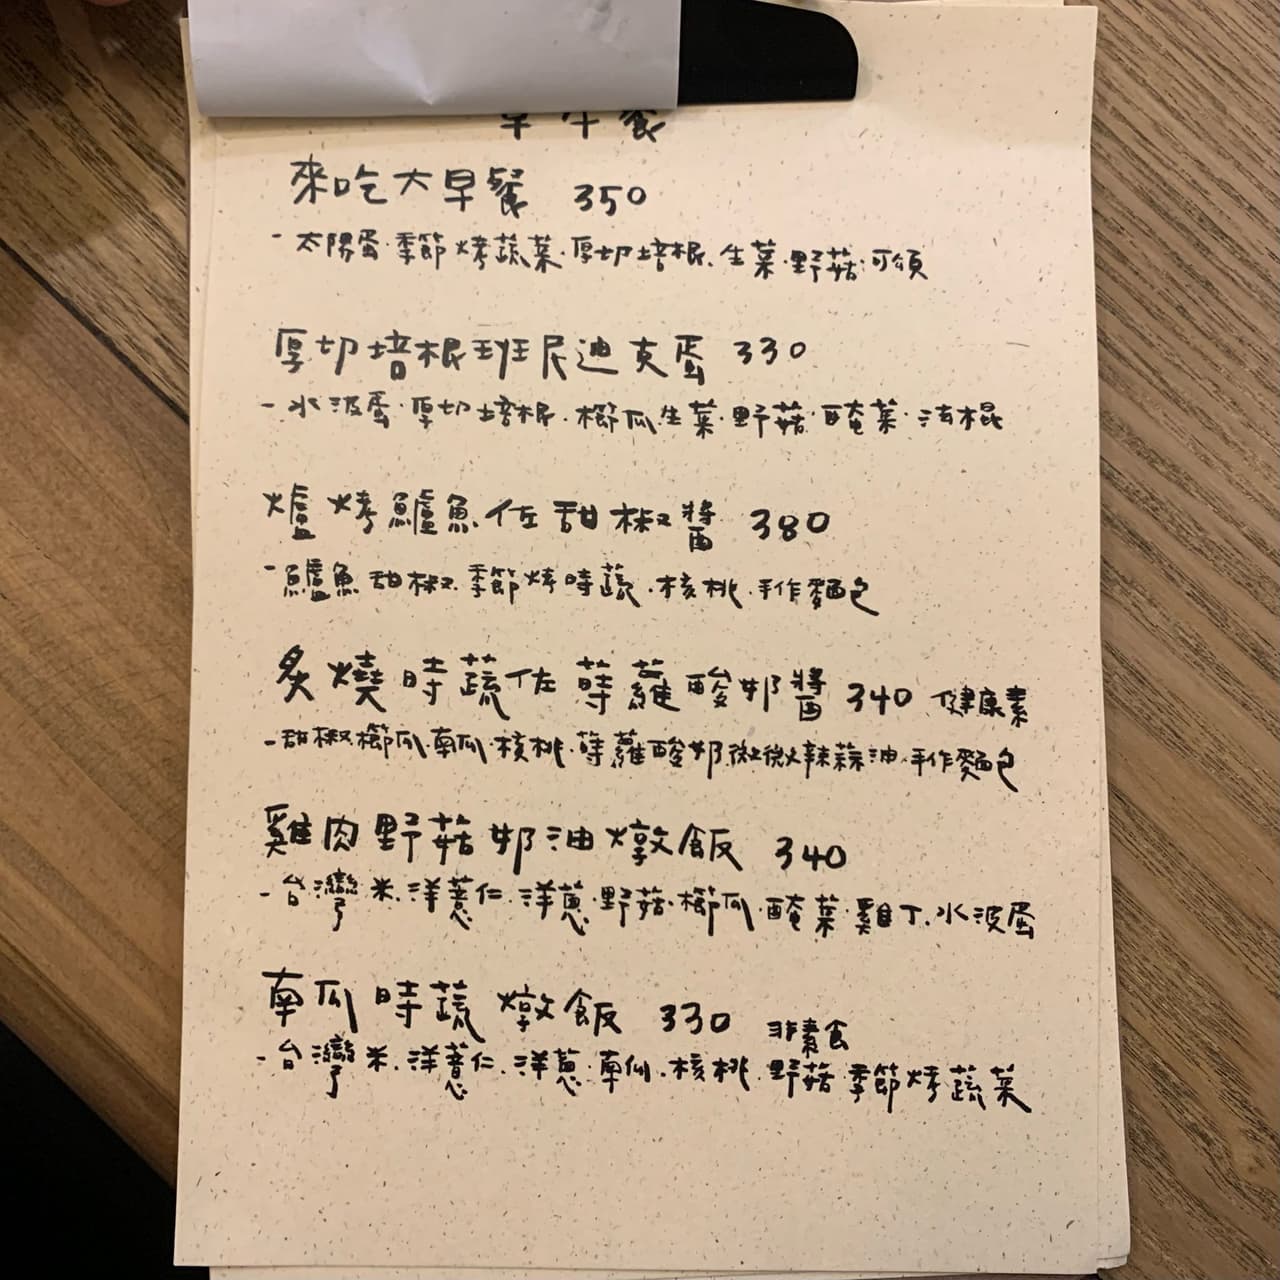 早午餐
來吃大早餐 350
- 太陽蛋·季節烤蔬菜·厚切培根·生菜·野菇·可頌
厚切培根班尼迪克蛋 330
- 水波蛋·厚切培根·櫛瓜·生菜·野菇·醃菜·法棍
爐烤鱸魚佐甜椒醬 380
- 鱸魚·甜椒·季節烤時蔬·核桃·手作麵包
炙燒時蔬佐蒔蘿酸奶醬 340 健康素
- 甜椒·櫛瓜·南瓜·核桃·蒔蘿酸奶·微微辣蒜油·手作麵包
雞肉野菇奶油燉飯 340
- 台灣米·洋薏仁·洋蔥·野菇·櫛瓜·醃菜·雞丁·水波蛋
南瓜時蔬燉飯 330 非素食
- 台灣米·洋薏仁·洋蔥·南瓜·核桃·野菇·季節烤蔬菜